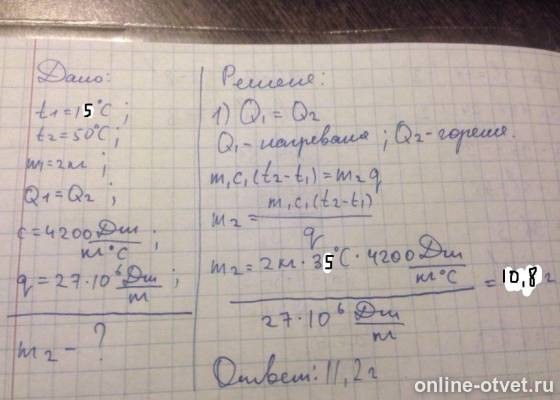 Дано:
t1=15°C;
t2=50°C;
m1=2кг;
Q1=Q2;
c=4200 Дж/кг°C;
q=27·10⁶ Дж/кг;
m2-?
Решение:
1) Q1=Q2
Q1-нагревание; Q2-горение.
m1c1(t2-t1)=m2q
m2= m1c1(t2-t1)/q
m2= 2кг·35°C·4200 Дж/кг°C / 27·10⁶ Дж/кг = 10,8г
Ответ: 11,2г
online-otvet.ru